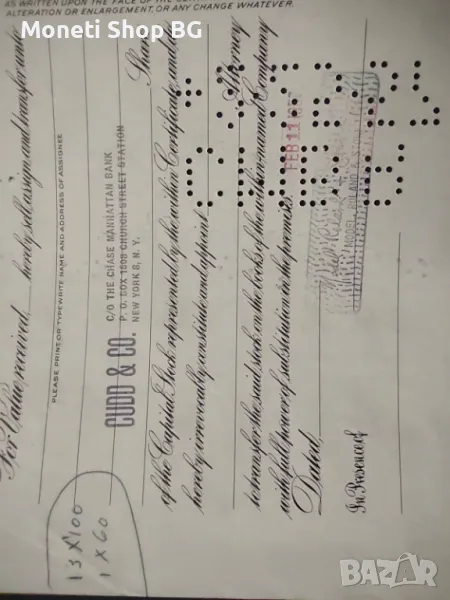 Moneti Shop BG
AS WRITTEN UPON THE FACE OF THE
ALTERATION OR ENLARGEMENT, OR ANY CHANGE WHATEVER.
For Value received, hereby sell, assign and transfer unto
PLEASE PRINT OR TYPEWRITE NAME AND ADDRESS OF ASSIGNEE
CUDD & CO.
C/O THE CHASE MANHATTAN BANK
P. O. BOX 1508 CHURCH STREET STATION
NEW YORK 8, N. Y.
Shares
of the Capital Stock represented by the within Certificate, and do
hereby irrevocably constitute and appoint
Attorney
to transfer the said stock on the books of the within-named Company
with full power of substitution in the premises.
Dated,
FEB 11
In Presence of
13 X 100
1 X 60
BAZAR